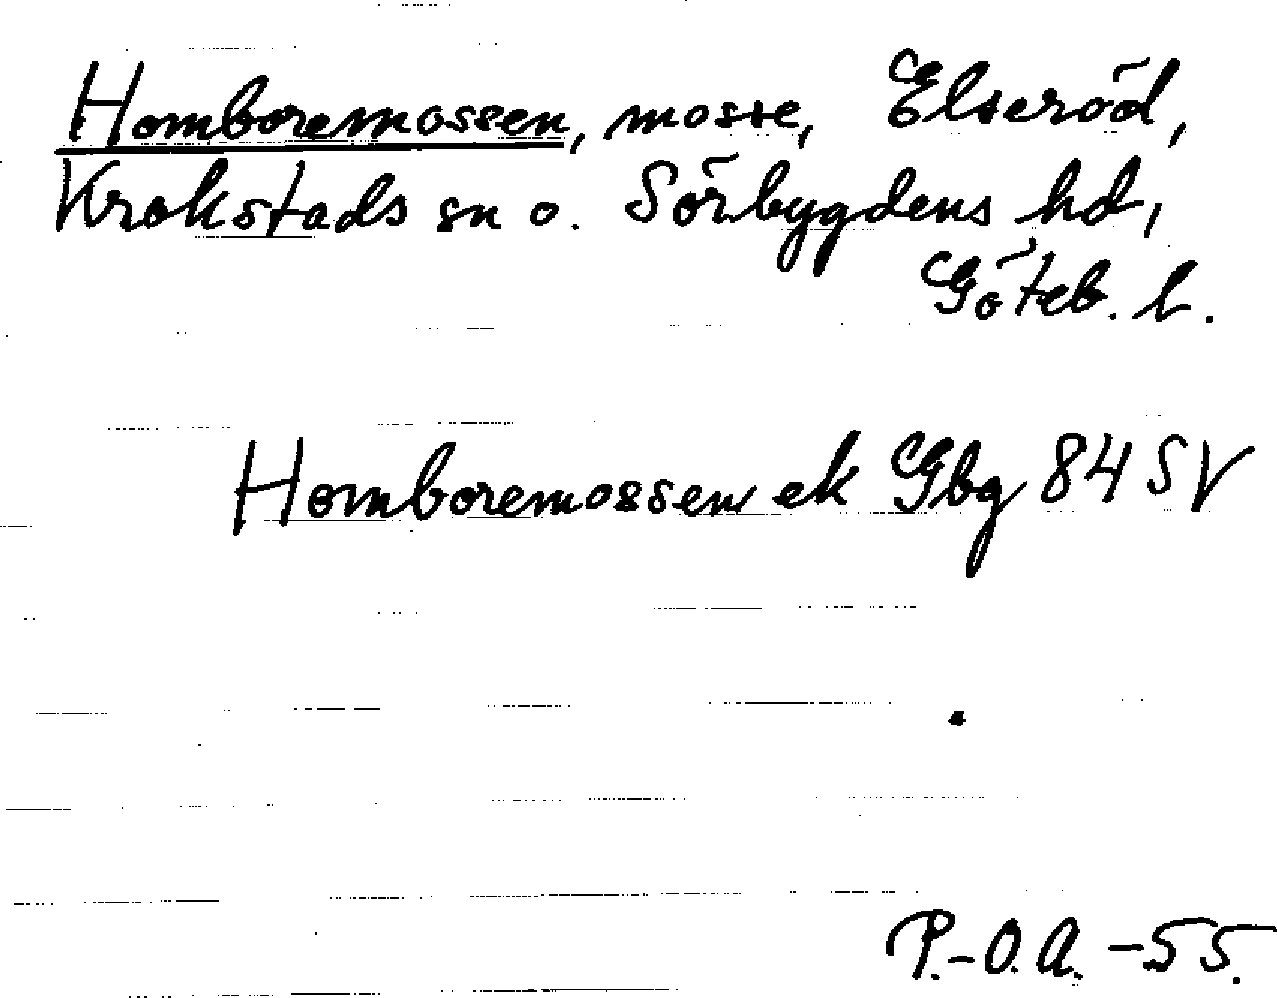 Homboremossen, mosse, Elseröd,
Krokstads sn o. Sörbygdens hd,
Göteb. l.
Homboremossen ek Gbg 84 SV
P.-O.A. -55.